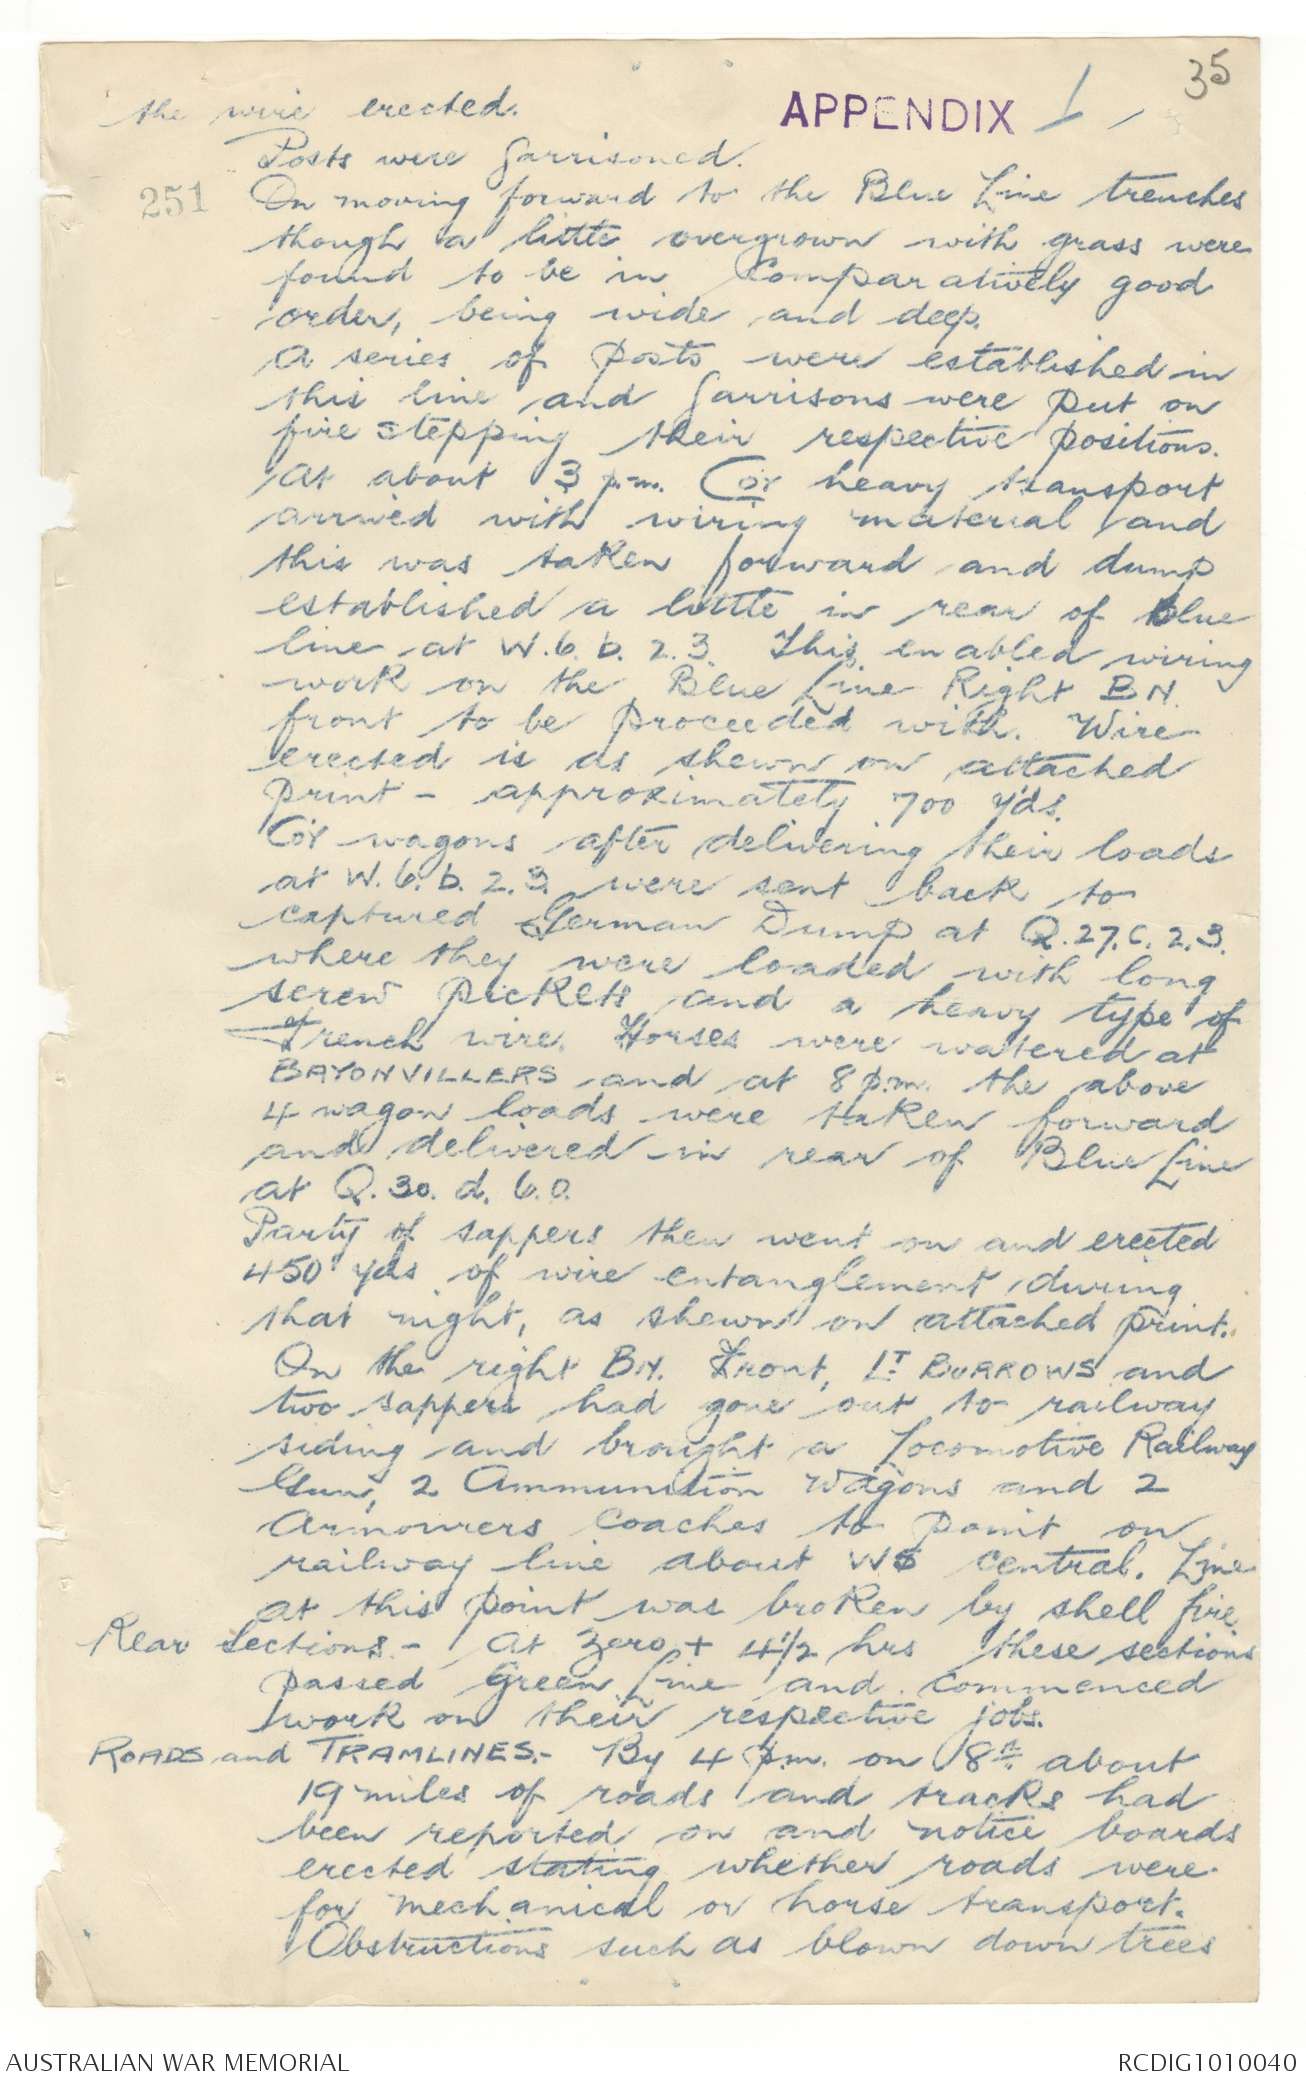 35
APPENDIX 1
the wire erected.
Posts were garrisoned.
251
On moving forward to the Blue Line trenches
though a little overgrown with grass were
found to be in comparatively good
order, being wide and deep.
A series of posts were established in
this line and Garrisons were put on
fire stepping their respective positions.
At about 3 p.m. Coy heavy transport
arrived with wiring material and
this was taken forward and dump
established a little in rear of blue
line at W.6.b.2.3. This enabled wiring
work on the Blue Line Right BN.
front to be proceeded with. Wire
erected is as shewn on attached
print - approximately 700 yds.
Coy wagons after delivering their loads
at W.6.b.2.3. were sent back to
captured German Dump at Q.27.C.2.3.
where they were loaded with long
screw pickets and a heavy type of
French wire. Horses were watered at
BAYONVILLERS and at 8 p.m. the above
4 wagon loads were taken forward
and delivered in rear of Blue Line
at Q.30.d.6.0.
Party of sappers then went on and erected
450 yds of wire entanglement during
that night, as shewn on attached print.
On the right BN. Front, LT BURROWS and
two sappers had gone out to railway
siding and brought a Locomotive Railway
Gun, 2 Ammunition Wagons and 2
Armourers Coaches to point on
railway line about W5 central. Line
at this point was broken by shell fire
Rear Sections. - At Zero + 4 1/2 hrs these sections
passed Green Line and commenced
work on their respective jobs.
ROADS and TRAMLINES. - By 4 p.m. on 8th about
19 miles of roads and tracks had
been reported on and notice boards
erected stating whether roads were
for mechanical or horse transport.
Obstructions such as blown down trees
AUSTRALIAN WAR MEMORIAL
RCDIG1010040